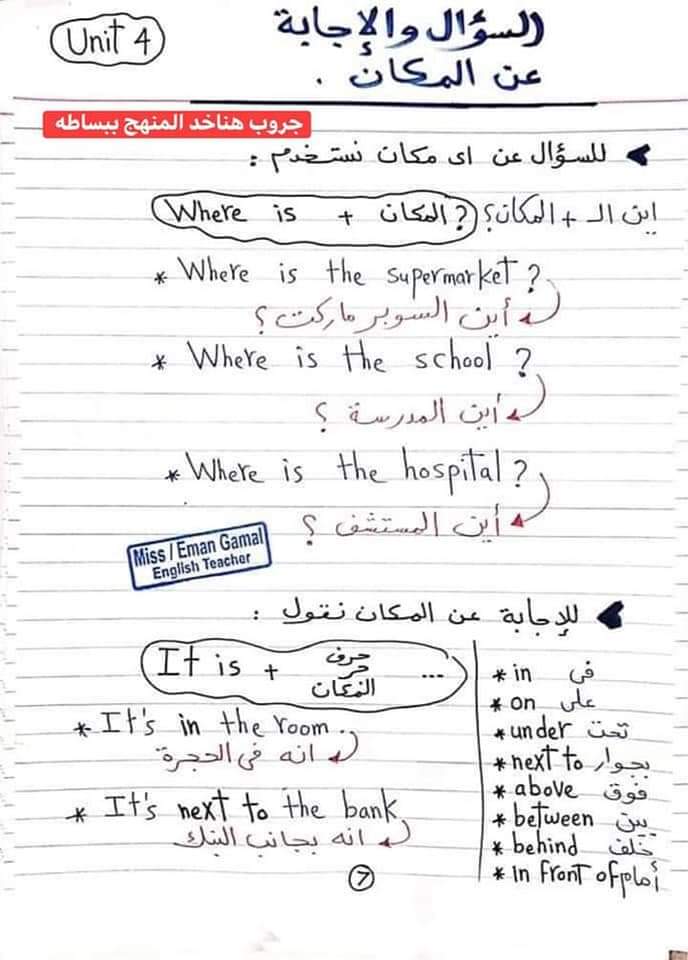 Unit 4
السؤال والإجابة
عن المكان .
جروب هناخد المنهج ببساطه
للسؤال عن اى مكان نستخدم :
اين الـ + المكان؟ Where is + المكان ?
* Where is the supermarket ?
أين السوبر ماركت ؟
* Where is the school ?
أين المدرسة ؟
* Where is the hospital ?
أين المستشفى ؟
Miss / Eman Gamal
English Teacher
للإجابة عن المكان نقول :
It is + حرف جر المكان ...
* It's in the room.
انه فى الحجرة
* It's next to the bank
انه بجانب البنك
* in فى
* on على
* under تحت
* next to بجوار
* above فوق
* between بين
* behind خلف
* in front of أمام
7